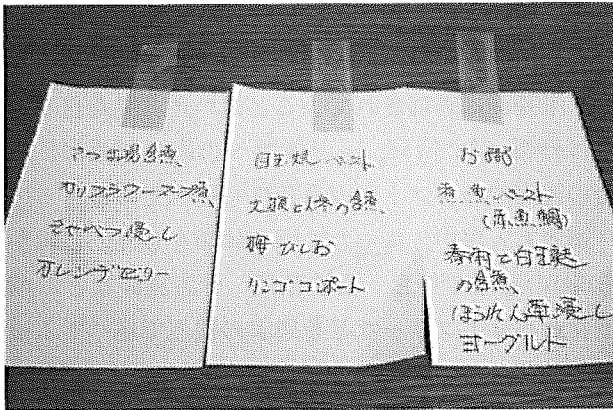 さつま揚含煮
カリフラワースープ煮
きゃべつ浸し
オレンジゼリー
目玉焼ペースト
大根と人参の含煮
梅びしお
リンゴコンポート
お粥
煮魚ペースト
(赤魚鯛)
春雨と
の含煮
ほうれん草浸し
ヨーグルト